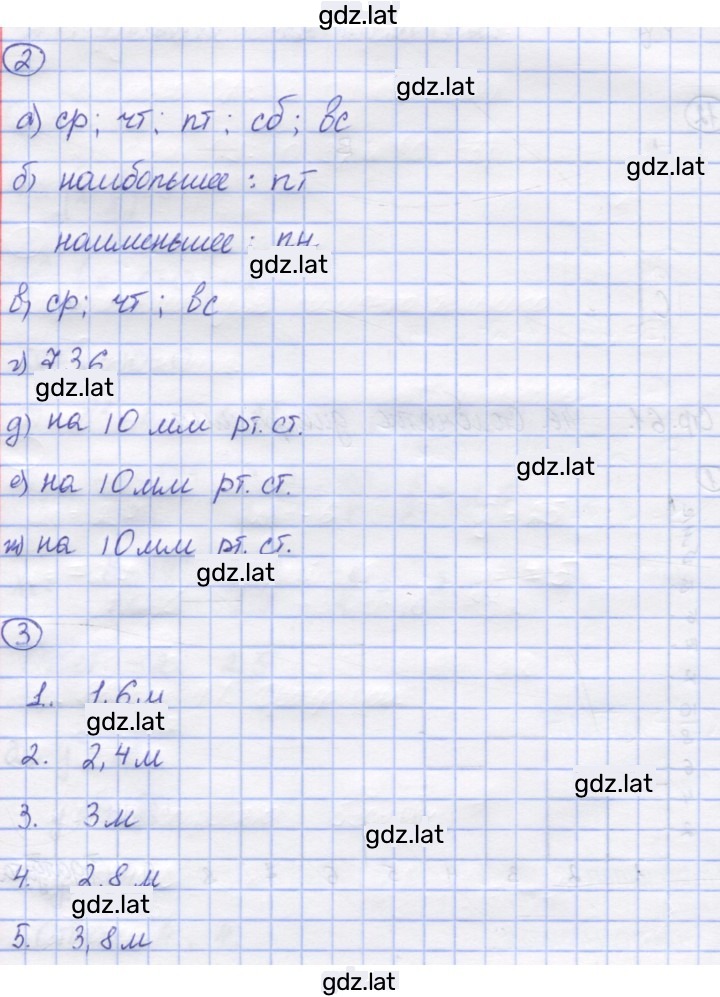 gdz.lat
2
gdz.lat
а) ср; чт; пт; сб; вс
gdz.lat
б) наибольшее: пт
наименьшее: пн.
gdz.lat
в) ср; чт; вс
г) 736
gdz.lat
д) на 10 мм рт. ст.
gdz.lat
е) на 10 мм рт. ст.
ж) на 10 мм рт. ст.
gdz.lat
3
1. 1,6 м
gdz.lat
2. 2,4 м
gdz.lat
3. 3 м
gdz.lat
4. 2,8 м
gdz.lat
5. 3,8 м
gdz.lat